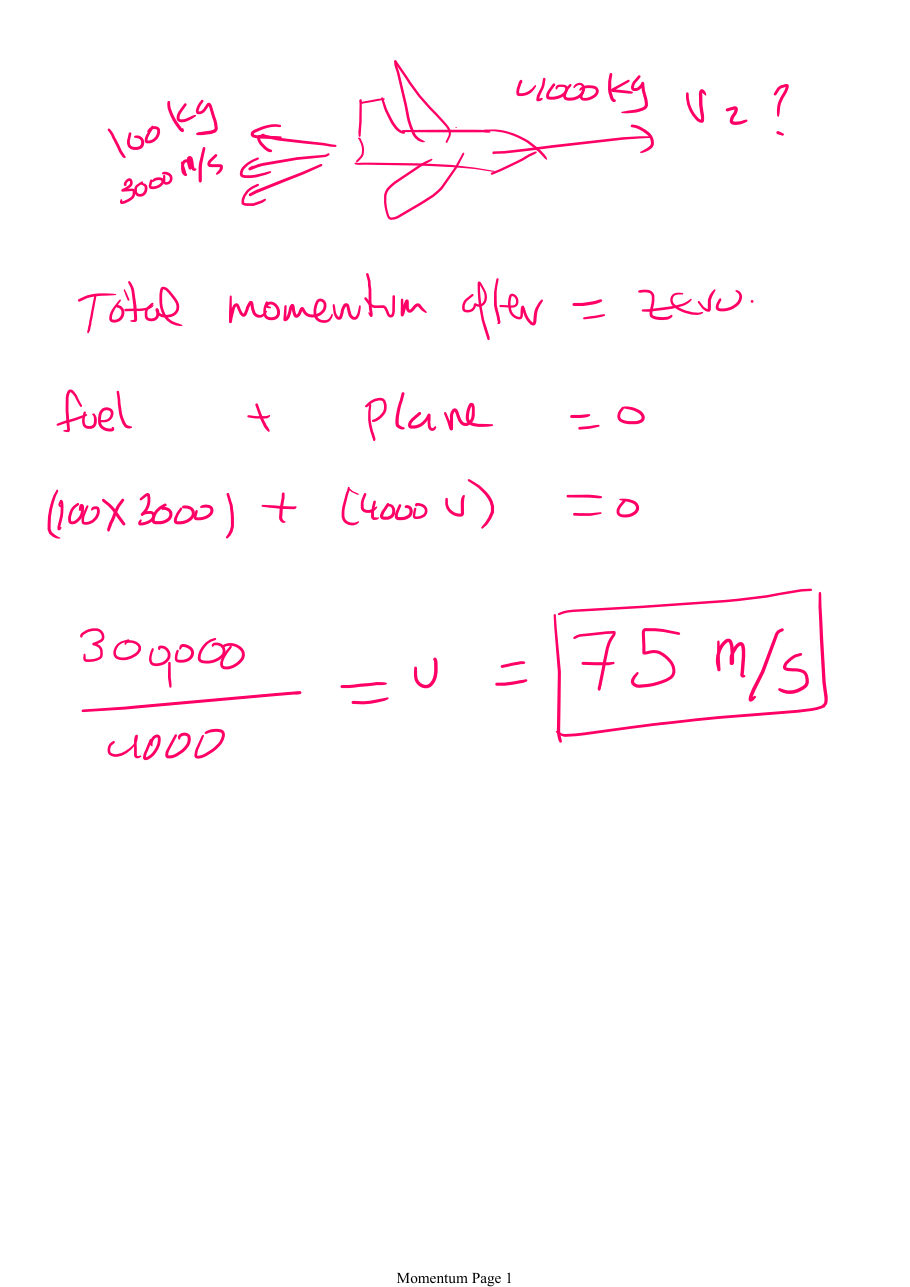 100 kg
3000 m/s
4000 kg
V2 ?
Total momentum after = zero.
fuel + plane = 0
(100 x 3000) + (4000 V) = 0
300,000
4000
= V = 75 m/s
Momentum Page 1